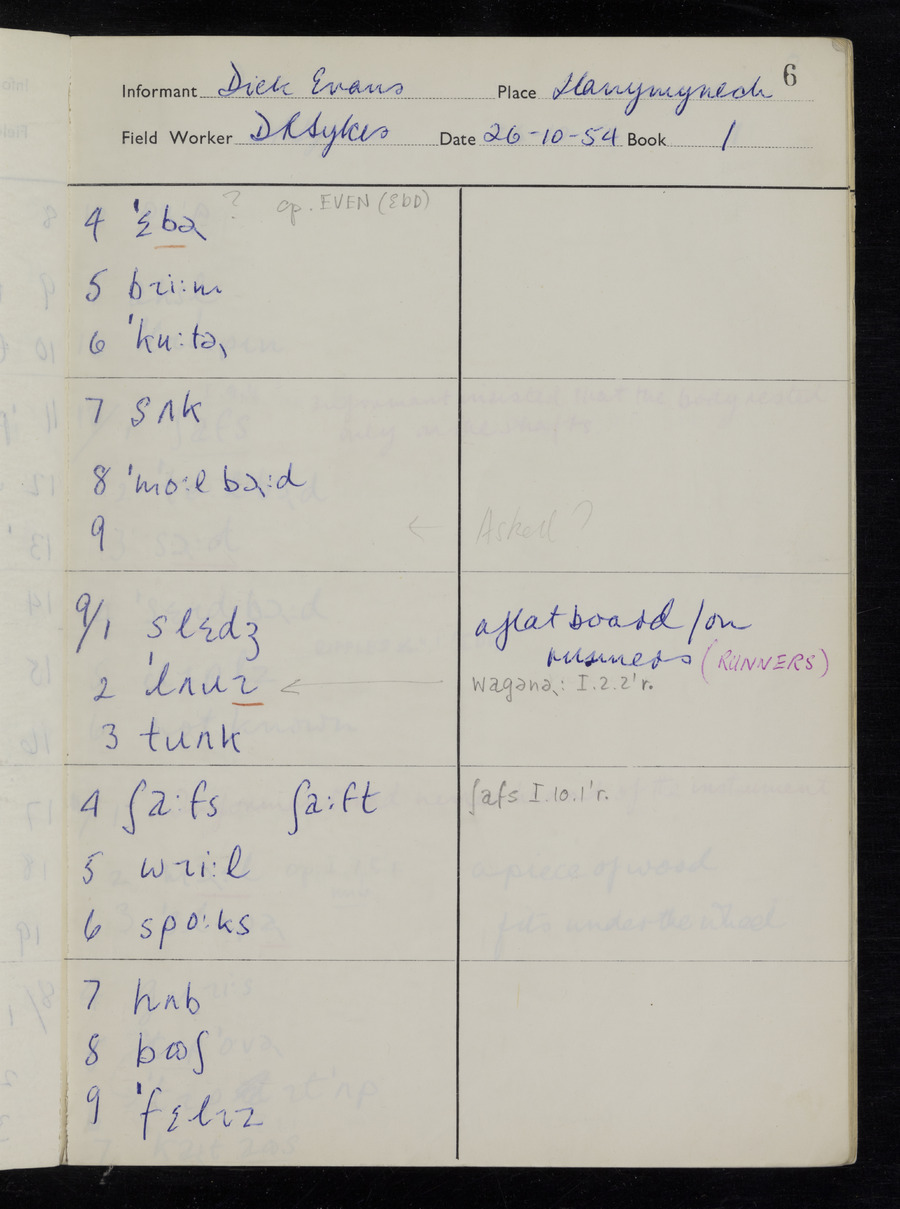 6
Informant Dick Evans Place Llanymynech
Field Worker DRSykes Date 26-10-54 Book 1
4 'ɛbə ? cp. EVEN (ƐbD)
5 bɹi:m
6 'ku:tə
7 sʌk
8 'mo:l bə:d
9 ← Asked?
9/1 slɛdʒ a flat board / on
runners (RUNNERS)
2 'lʌuɪz ← wagənə: I.2.2'r.
3 tɹʌk
4 ʃa:fs ʃa:ft ʃafs I.10.1'r.
5 wɹi:l
6 spo:ks
7 hʌb
8 bɷʃ
9 'fɛlɪz